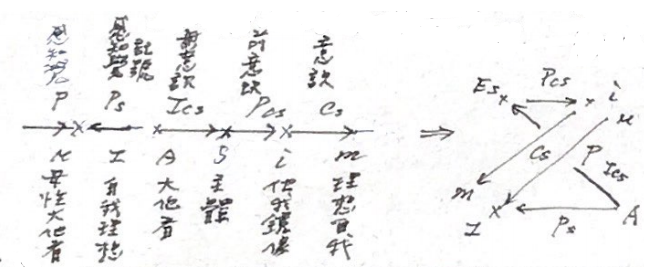 感知覺
感知覺
記號
無意識
前意識
意識
P Ps Ics Pcs Cs
M I A S i m
母性大他者
自我理想
大他者
主體
他我鏡像
理想自我
Es Pcs i
M
Cs P Ics
m
I Ps A